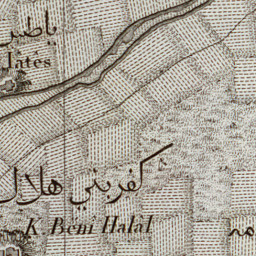 ياطس
Jatès
كفر بني هلال
K. Beni Halâl
مه